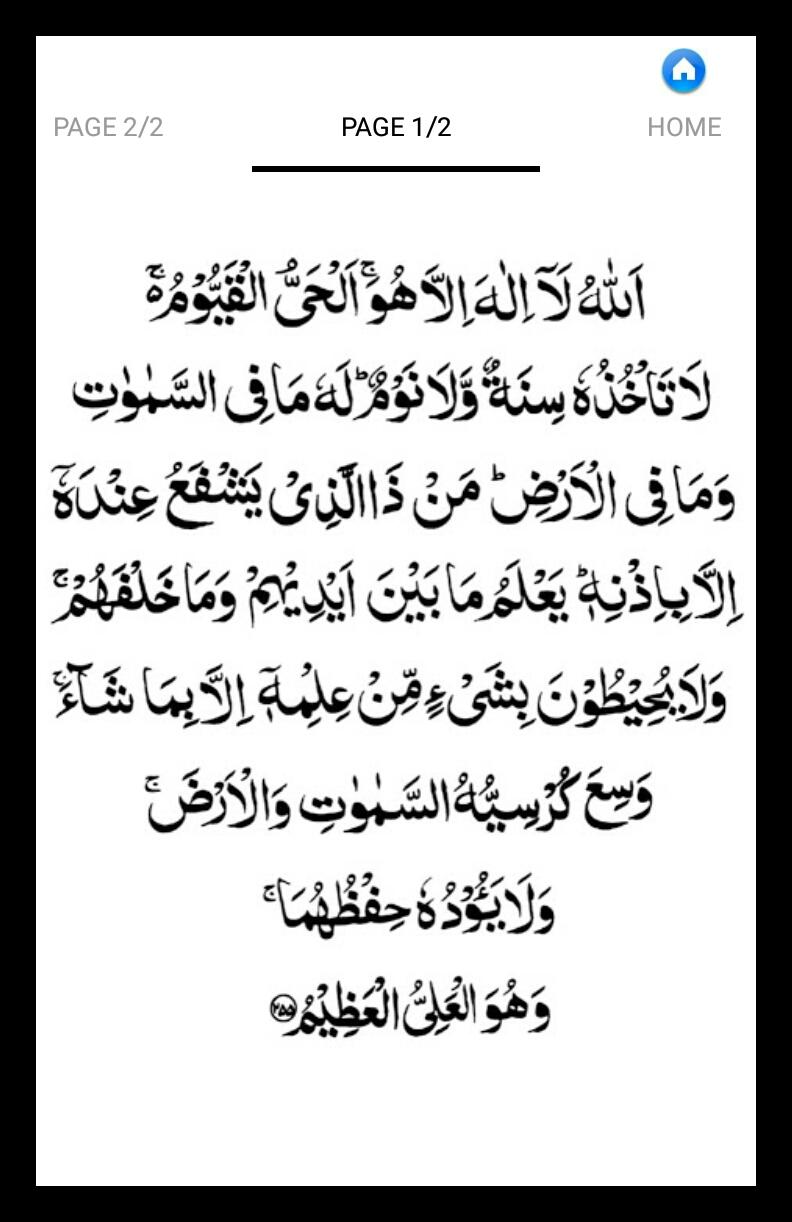 PAGE 2/2 PAGE 1/2 HOME
اَللّٰهُ لَآ اِلٰهَ اِلَّا هُوَ ۚ اَلْحَيُّ الْقَيُّوْمُ ۚ۬
لَا تَاْخُذُهٗ سِنَةٌ وَّلَا نَوْمٌ ؕ لَهٗ مَا فِی السَّمٰوٰتِ
وَمَا فِی الْاَرْضِ ؕ مَنْ ذَا الَّذِیْ یَشْفَعُ عِنْدَهٗۤ
اِلَّا بِاِذْنِهٖ ؕ یَعْلَمُ مَا بَیْنَ اَیْدِیْهِمْ وَمَا خَلْفَهُمْ ۚ
وَلَا یُحِیْطُوْنَ بِشَیْءٍ مِّنْ عِلْمِهٖۤ اِلَّا بِمَا شَآءَ ۚ
وَسِعَ كُرْسِیُّهُ السَّمٰوٰتِ وَالْاَرْضَ ۚ
وَلَا یَـُٔوْدُهٗ حِفْظُهُمَا ۚ
وَهُوَ الْعَلِیُّ الْعَظِیْمُ ﴿۲۵۵﴾